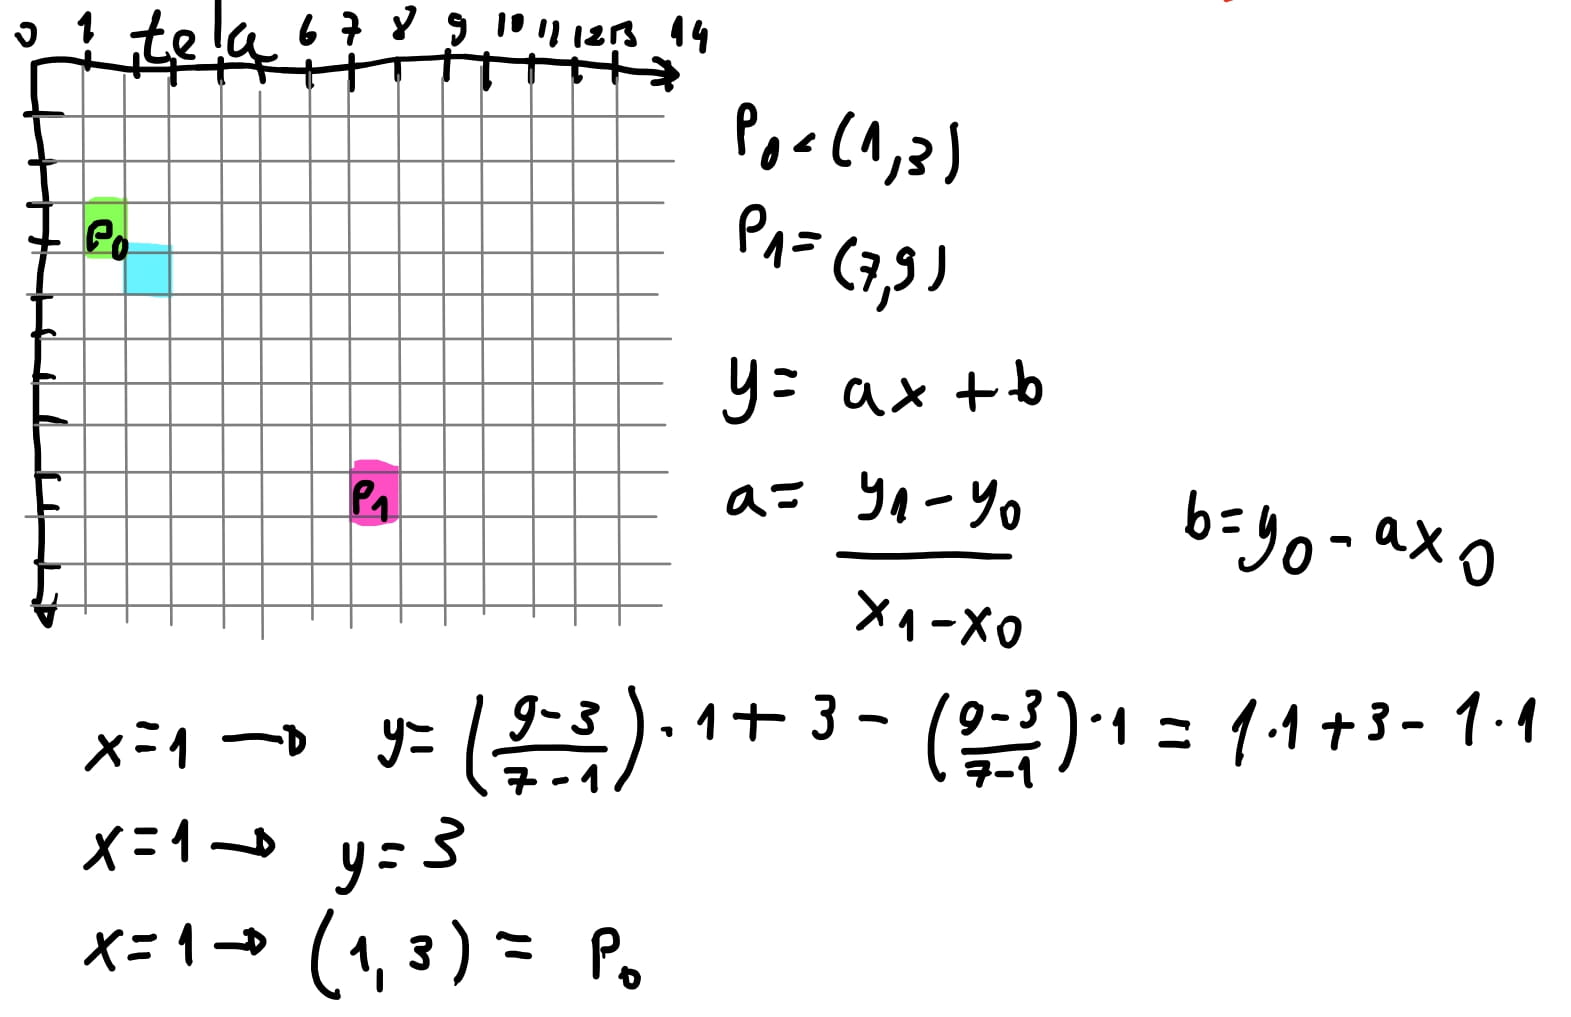 0 1 tela 6 7 8 9 10 11 12 13 14
P₀ = (1,3)
P₁ = (7,9)
P₀
y = ax + b
P₁
a = y₁ - y₀ / x₁ - x₀
b = y₀ - ax₀
x=1 → y = (9-3 / 7-1) · 1 + 3 - (9-3 / 7-1) · 1 = 1·1 + 3 - 1·1
x=1 → y = 3
x=1 → (1,3) = P₀